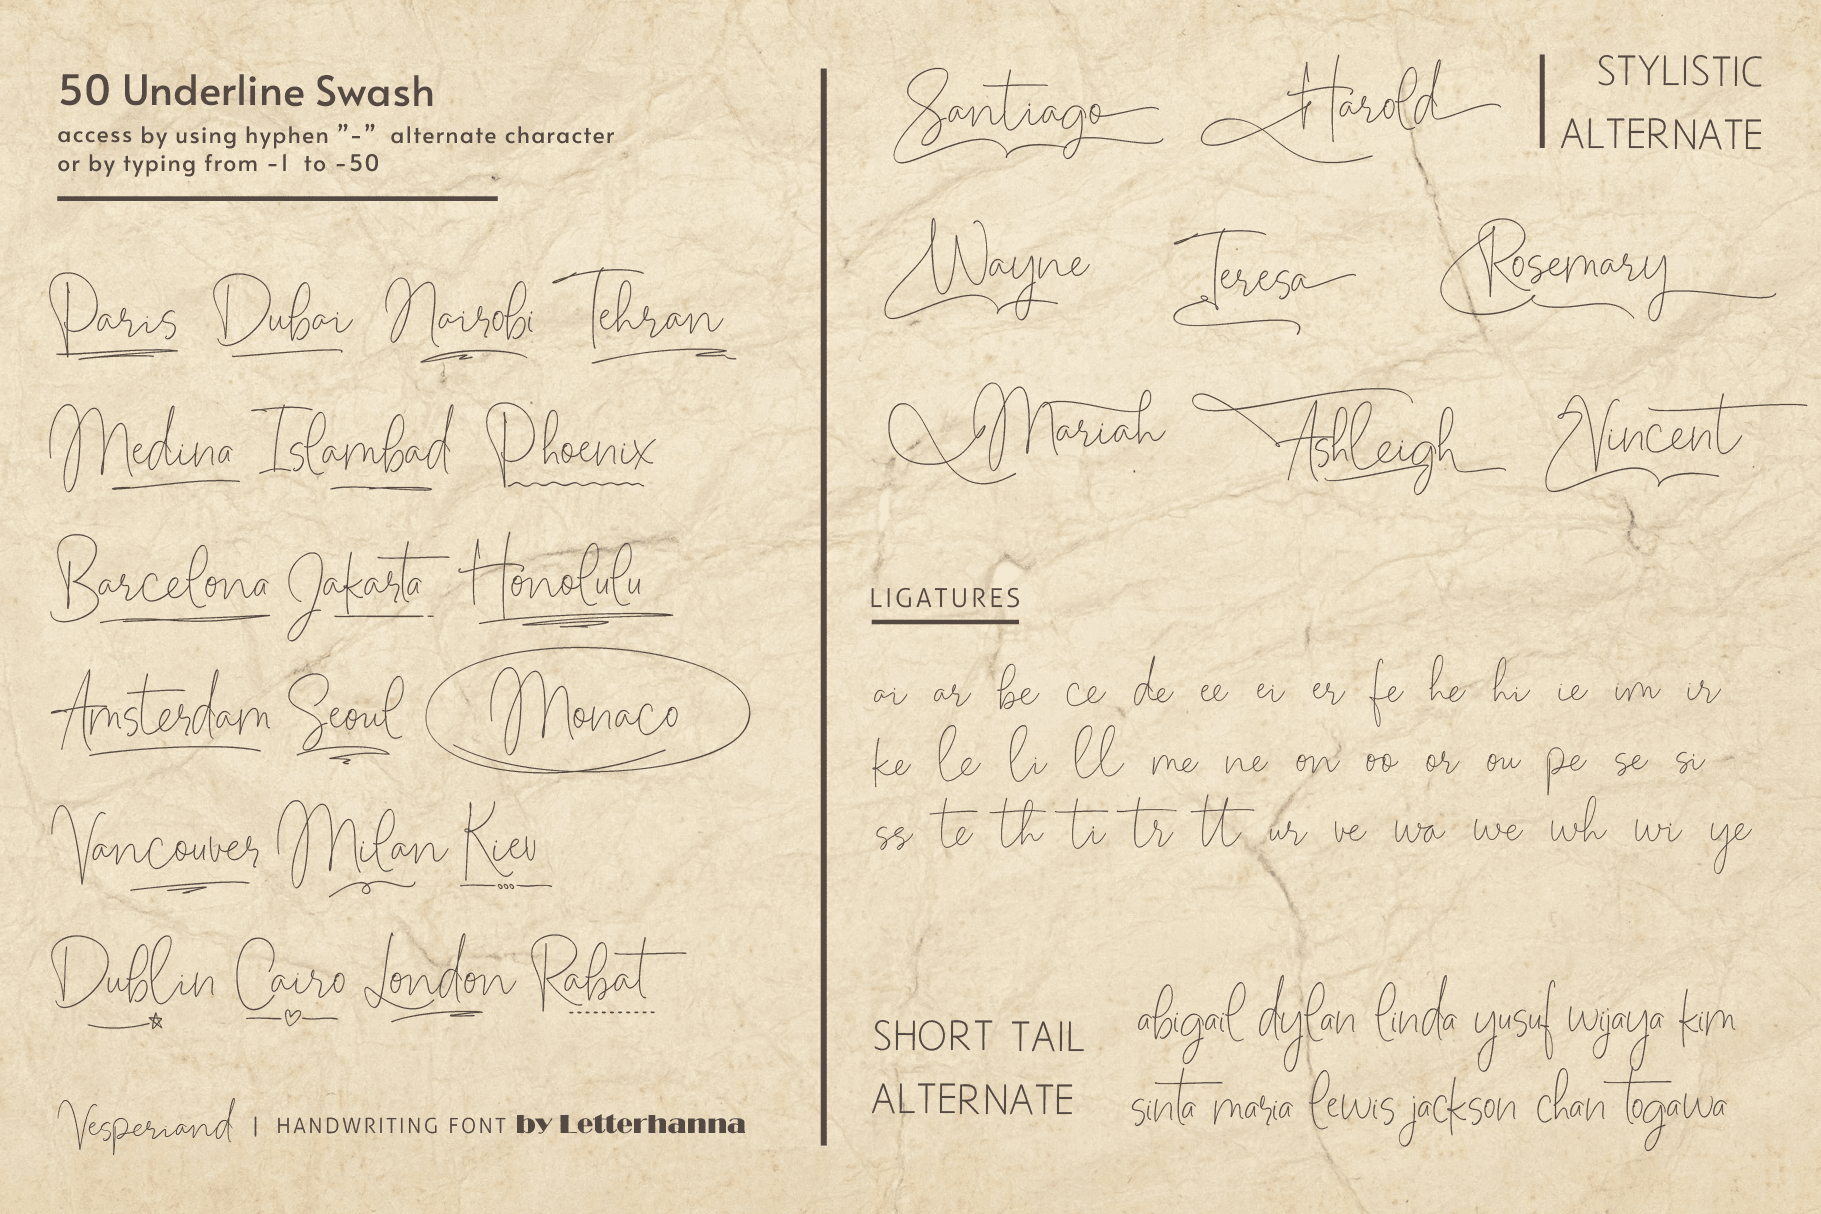 50 Underline Swash
access by using hyphen ”-” alternate character
or by typing from -1 to -50
Paris Dubai Nairobi Tehran
Medina Islambad Phoenix
Barcelona Jakarta Honolulu
Amsterdam Seoul Monaco
Vancouver Milan Kiev
Dublin Cairo London Rabat
Vesperiand | HANDWRITING FONT by Letterhanna
STYLISTIC
ALTERNATE
Santiago Harold
Wayne Teresa Rosemary
Mariah Ashleigh Vincent
LIGATURES
ai ar be ce de ee ei er fe he hi ie im ir
ke le li ll me ne on oo or ou pe se si
ss te th ti tr tt ur ve wa we wh wi ye
SHORT TAIL
ALTERNATE
abigail dylan linda yusuf wijaya kim
sinta maria lewis jackson chan togawa